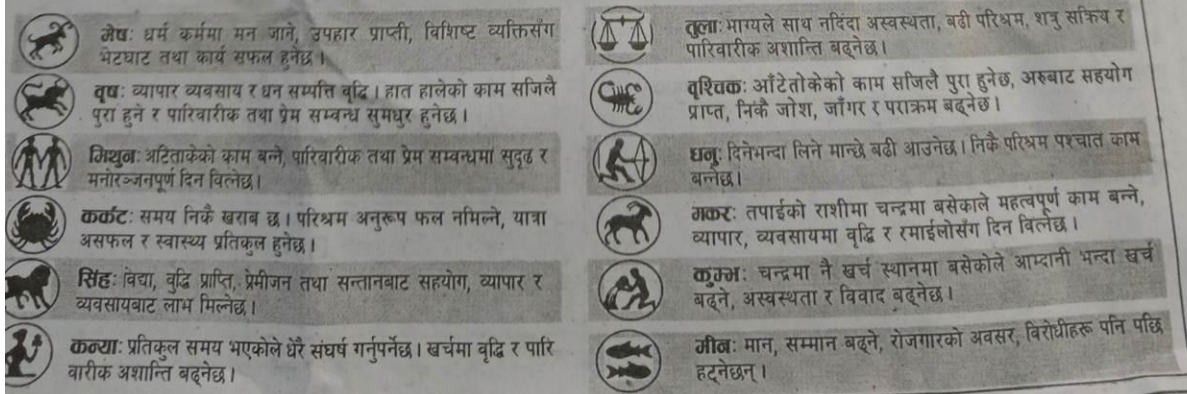 मेष: धर्म कर्ममा मन जाने, उपहार प्राप्ती, विशिष्ट व्यक्तिसँग
भेटघाट तथा कार्य सफल हुनेछ।
वृष: व्यापार व्यवसाय र धन सम्पत्ति वृद्धि। हात हालेको काम सजिलै
पुरा हुने र पारिवारीक तथा प्रेम सम्बन्ध सुमधुर हुनेछ।
मिथुन: अटिताकेको काम बन्ने, पारिवारीक तथा प्रेम सम्बन्धमा सुदृढ र
मनोरञ्जनपूर्ण दिन वित्नेछ।
कर्कट: समय निकै खराब छ। परिश्रम अनुरूप फल नमिल्ने, यात्रा
असफल र स्वास्थ्य प्रतिकुल हुनेछ।
सिंह: विद्या, वुद्धि प्राप्ति, प्रेमीजन तथा सन्तानबाट सहयोग, व्यापार र
व्यवसायबाट लाभ मिल्नेछ।
कन्या: प्रतिकुल समय भएकोले धेरै संघर्ष गर्नुपर्नेछ। खर्चमा वृद्धि र पारि
वारीक अशान्ति बढ्नेछ।
तुला: भाग्यले साथ नदिंदा अस्वस्थता, बढी परिश्रम, शत्रु सक्रिय र
पारिवारीक अशान्ति बढ्नेछ।
वृश्चिक: आँटेतोकेको काम सजिलै पुरा हुनेछ, अरुबाट सहयोग
प्राप्त, निकै जोश, जाँगर र पराक्रम बढ्नेछ।
धनु: दिनेभन्दा लिने मान्छे बढी आउनेछ। निकै परिश्रम पश्चात काम
बन्नेछ।
मकर: तपाईको राशीमा चन्द्रमा बसेकाले महत्वपूर्ण काम बन्ने,
व्यापार, व्यवसायमा वृद्धि र रमाईलोसँग दिन वित्नेछ।
कुम्भ: चन्द्रमा नै खर्च स्थानमा बसेकोले आम्दानी भन्दा खर्च
बढ्ने, अस्वस्थता र विवाद बढ्नेछ।
मीन: मान, सम्मान बढ्ने, रोजगारको अवसर, विरोधीहरू पनि पछि
हट्नेछन्।